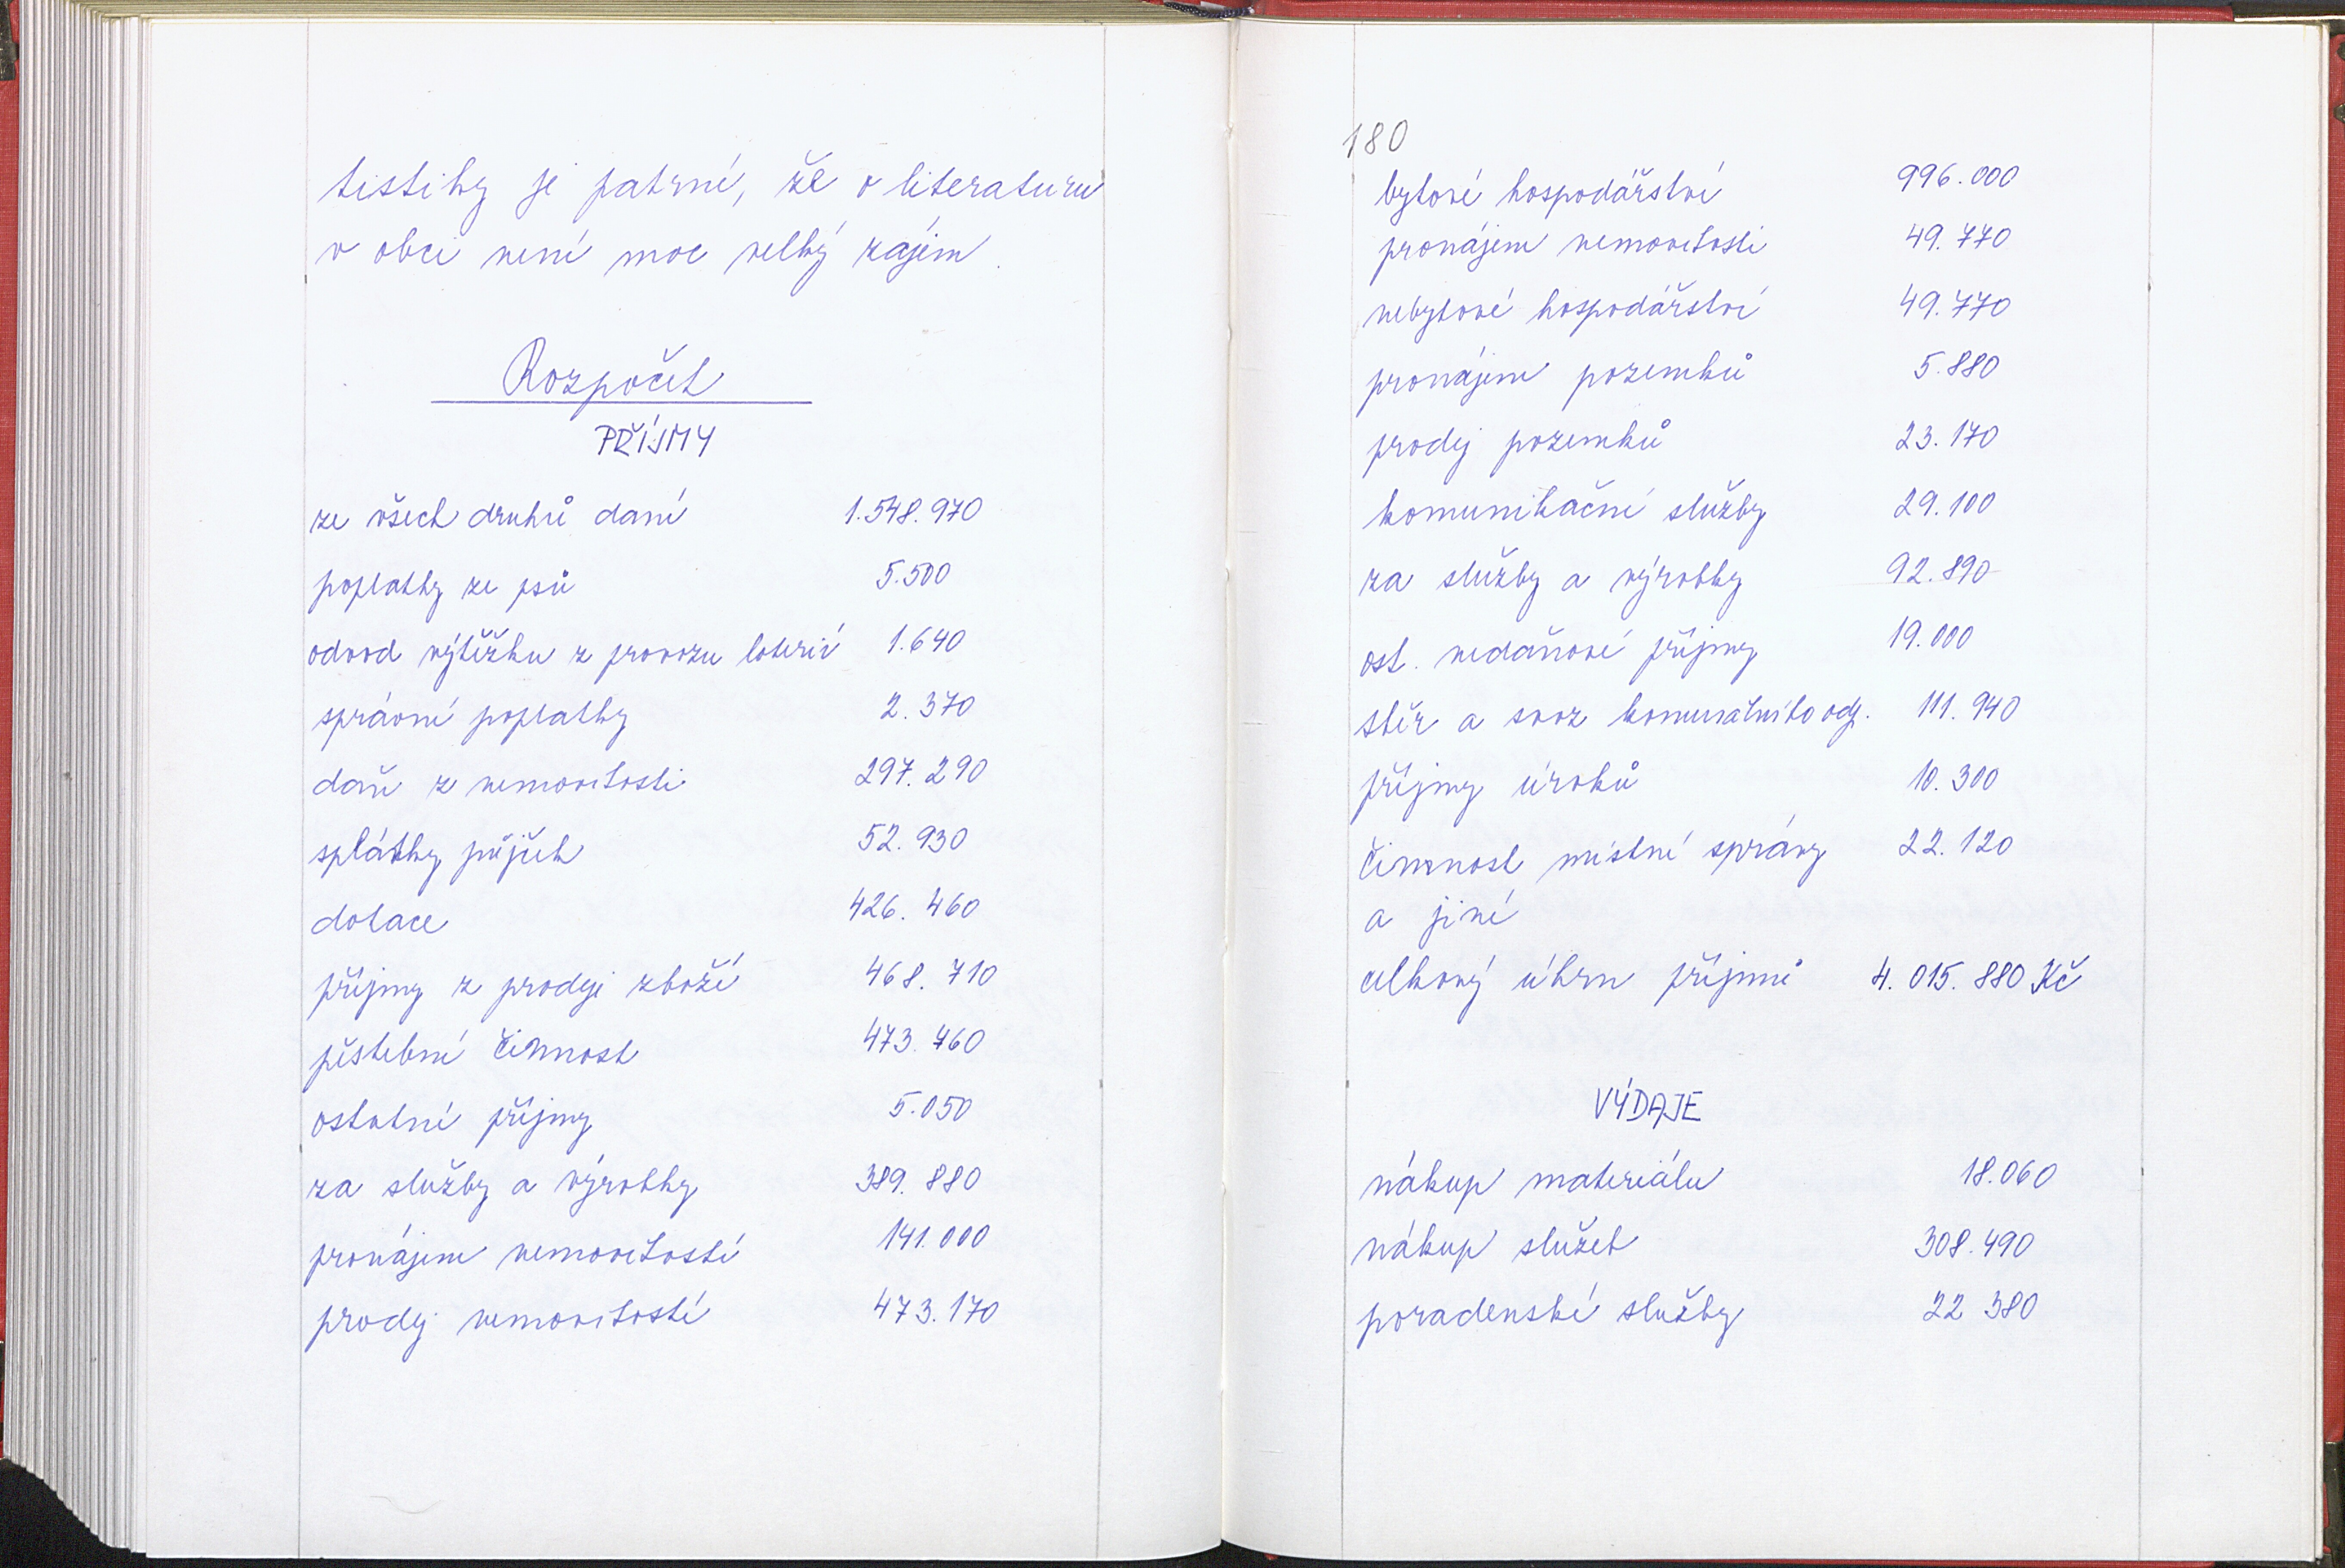 tistiky je patrné, že o literaturu
v obci není moc velký zájem.
Rozpočet
PŘÍJMY
ze všech druhů daní 1.548.970
poplatky ze psů 5.500
odvod výtěžku z provozu loterií 1.640
správní poplatky 2.370
daň z nemovitosti 297.290
splátky půjček 52.930
dotace 426.460
příjmy z prodeje zboží 468.710
pěstební činnost 473.460
ostatní příjmy 5.050
za služby a výrobky 389.880
pronájem nemovitostí 141.000
prodej nemovitostí 473.170
180
bytové hospodářství 996.000
pronájem nemovitosti 49.770
nebytové hospodářství 49.770
pronájem pozemků 5.880
prodej pozemků 23.170
komunikační služby 29.100
za služby a výrobky 92.890
ost. nedaňové příjmy 19.000
sběr a svoz komunálního odp. 111.940
příjmy úroků 10.300
činnost místní správy 22.120
a jiné
celkový úhrn příjmů 4.015.880 Kč
VÝDAJE
nákup materiálu 18.060
nákup služeb 308.490
poradenské služby 22 380